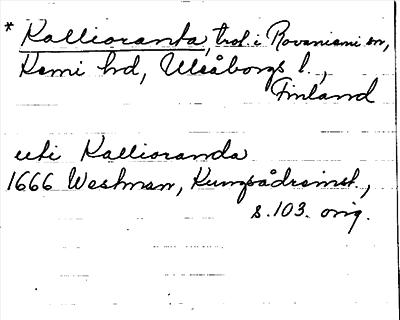 * Kallioranta, trol. i Rovaniemi sn,
Kemi hd, Uleåborgs l.,
Finland
uti Kallioranda
1666 Westman, Kungsådreinst.,
s. 103. orig.